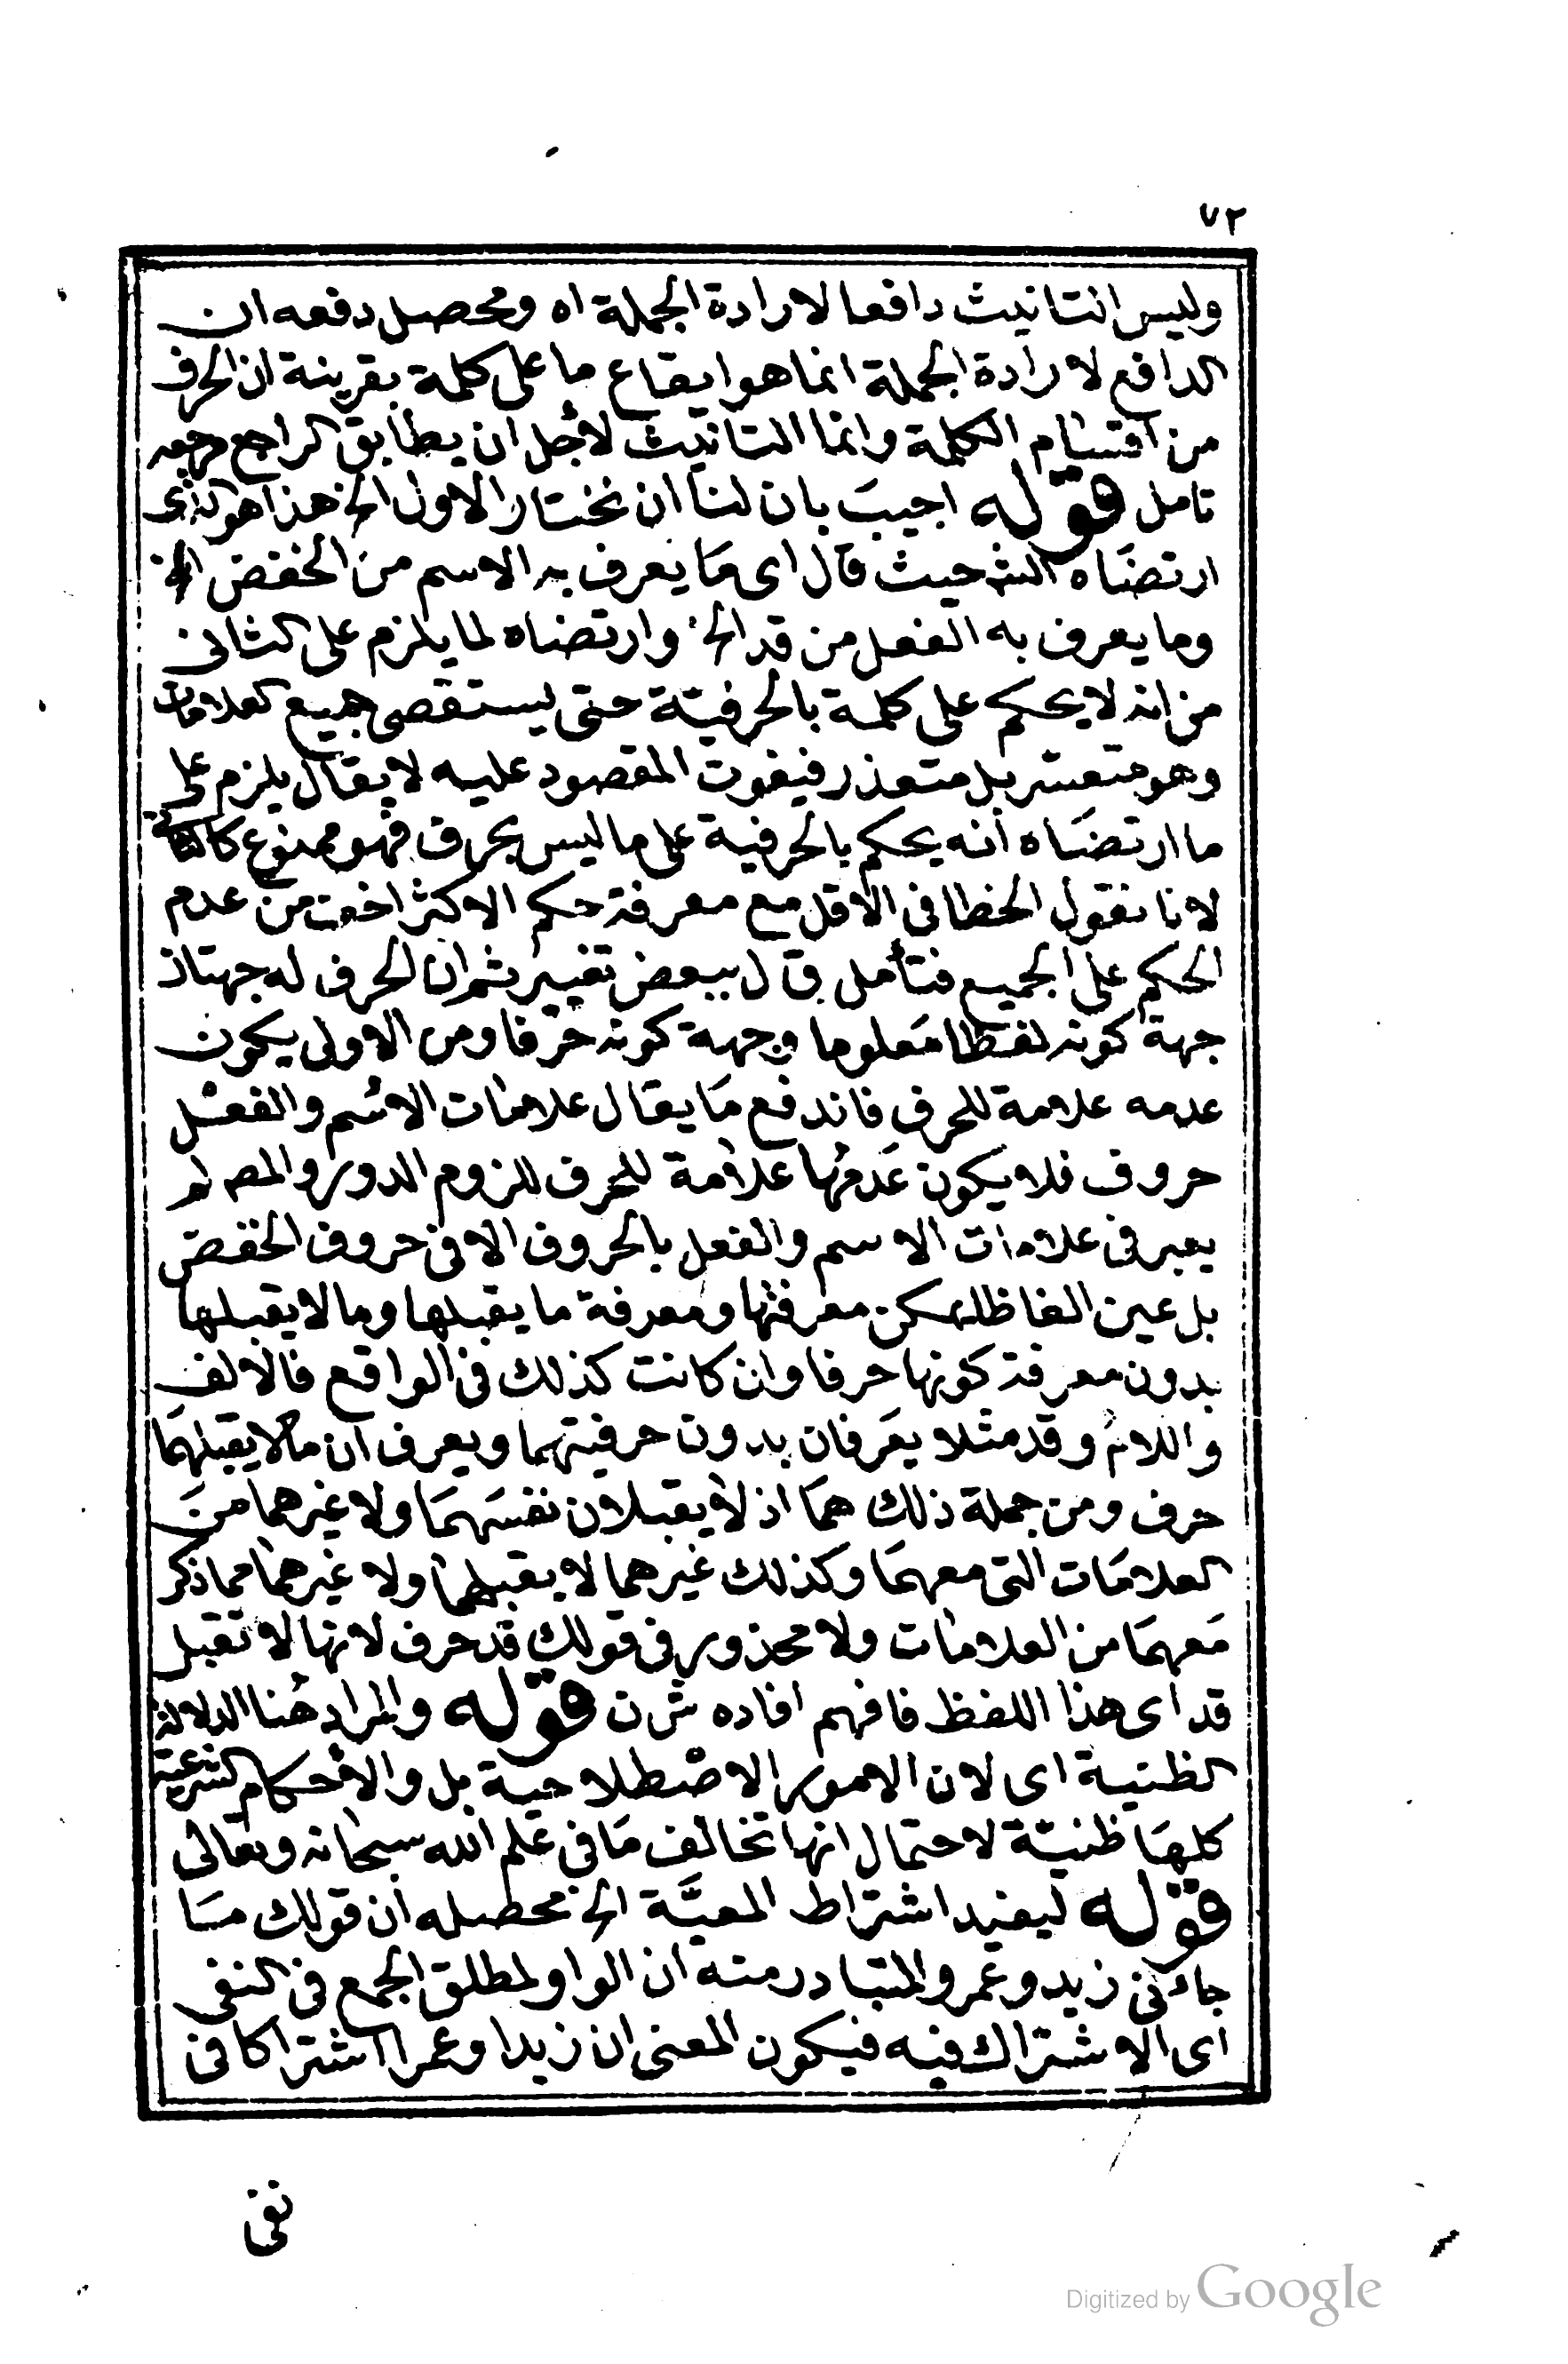 ٧٢
وليس التانيث دافعا لارادة الجملة اه ومحصل دفعه ان
الدافع لارادة الجملة انما هو ايقاع ما على كلمة بقرينة ان الحرف
من اقسام الكلمة وانما التانيث لأجل ان يطابق الراجع مرجعه
تامل قوله اجيب بان لنا ان نختار الاول الخ هذا هو الذى
ارتضاه الش حيث قال اى ما يعرف به الاسم من الخفض الخ
وما يعرف به الفعل من قد الخ وارتضاه لما يلزم على الثانى
من انه لا يحكم على كلمة بالحرفيّة حتى يستقصى جميع العلامات
وهو متعسر بل متعذر فيفوت المقصود عليه لا يقال يلزم على
ما ارتضاه أنه يحكم بالحرفية على ما ليس بحرف فهو ممنوع كالثانى
لانا نقول الخطا فى الاقل مع معرفة حكم الاكثر اخف من عدم
الحكم على الجميع فتأمل ق ل ببعض تغيير ثم ان الحرف له جهتان
جهة كونه لفظا مَعلوما وجهة كونه حرفا ومن الاولى يكون
عدمه علامة للحرف فاندفع مَا يقال علامات الاسْم والفعل
حروف فلا يكون عَدمُها علامة للحرف للزوم الدور والمص لم
يعبر فى علامات الاسم والفعل بالحروف الا فى حروف الخفض
بل عين الفاظا يمكن معرفتها ومعرفة ما يقبلها وما لا يقبلها
بدون معرفة كونها حرفا وان كانت كذلك فى الواقع فالالف
واللامُ وقد مثلا يعَرفان بدون حرفيتهما ويعرف ان ما لا يقبلهمَا
حرف ومن جملة ذلك همَا اذ لا يقبلان نفسَهمَا ولا غيرهما منَ
العلامَات التى معهمَا وكذلك غيرهما لا يقبلهما ولا غيرهما مما ذكر
مَعهمَا من العلامات ولا محذور فى قولك قد حرف لانها لا تقبل
قد اى هذا اللفظ فافهم افاده ش ن قوله والمراد هُنا الدلالة
الظنية اى لان الامور الاصْطلاحية بل والاحكام الشرعية
كلهَا ظنيّة لاحتمال انها تخالف مَا فى عَلم الله سبحانه وتعالى
قوله ليفيد اشتراط المعيَّة الخ محصله أن قولك مَا
جاءنى زيد وعمرو المتبادر منه ان الواو لمطلق الجمع فى النفى
اى الاشتراك فيه فيكون المعنى ان زيدا وعمرا اشتركا فى
نفى
Digitized by Google